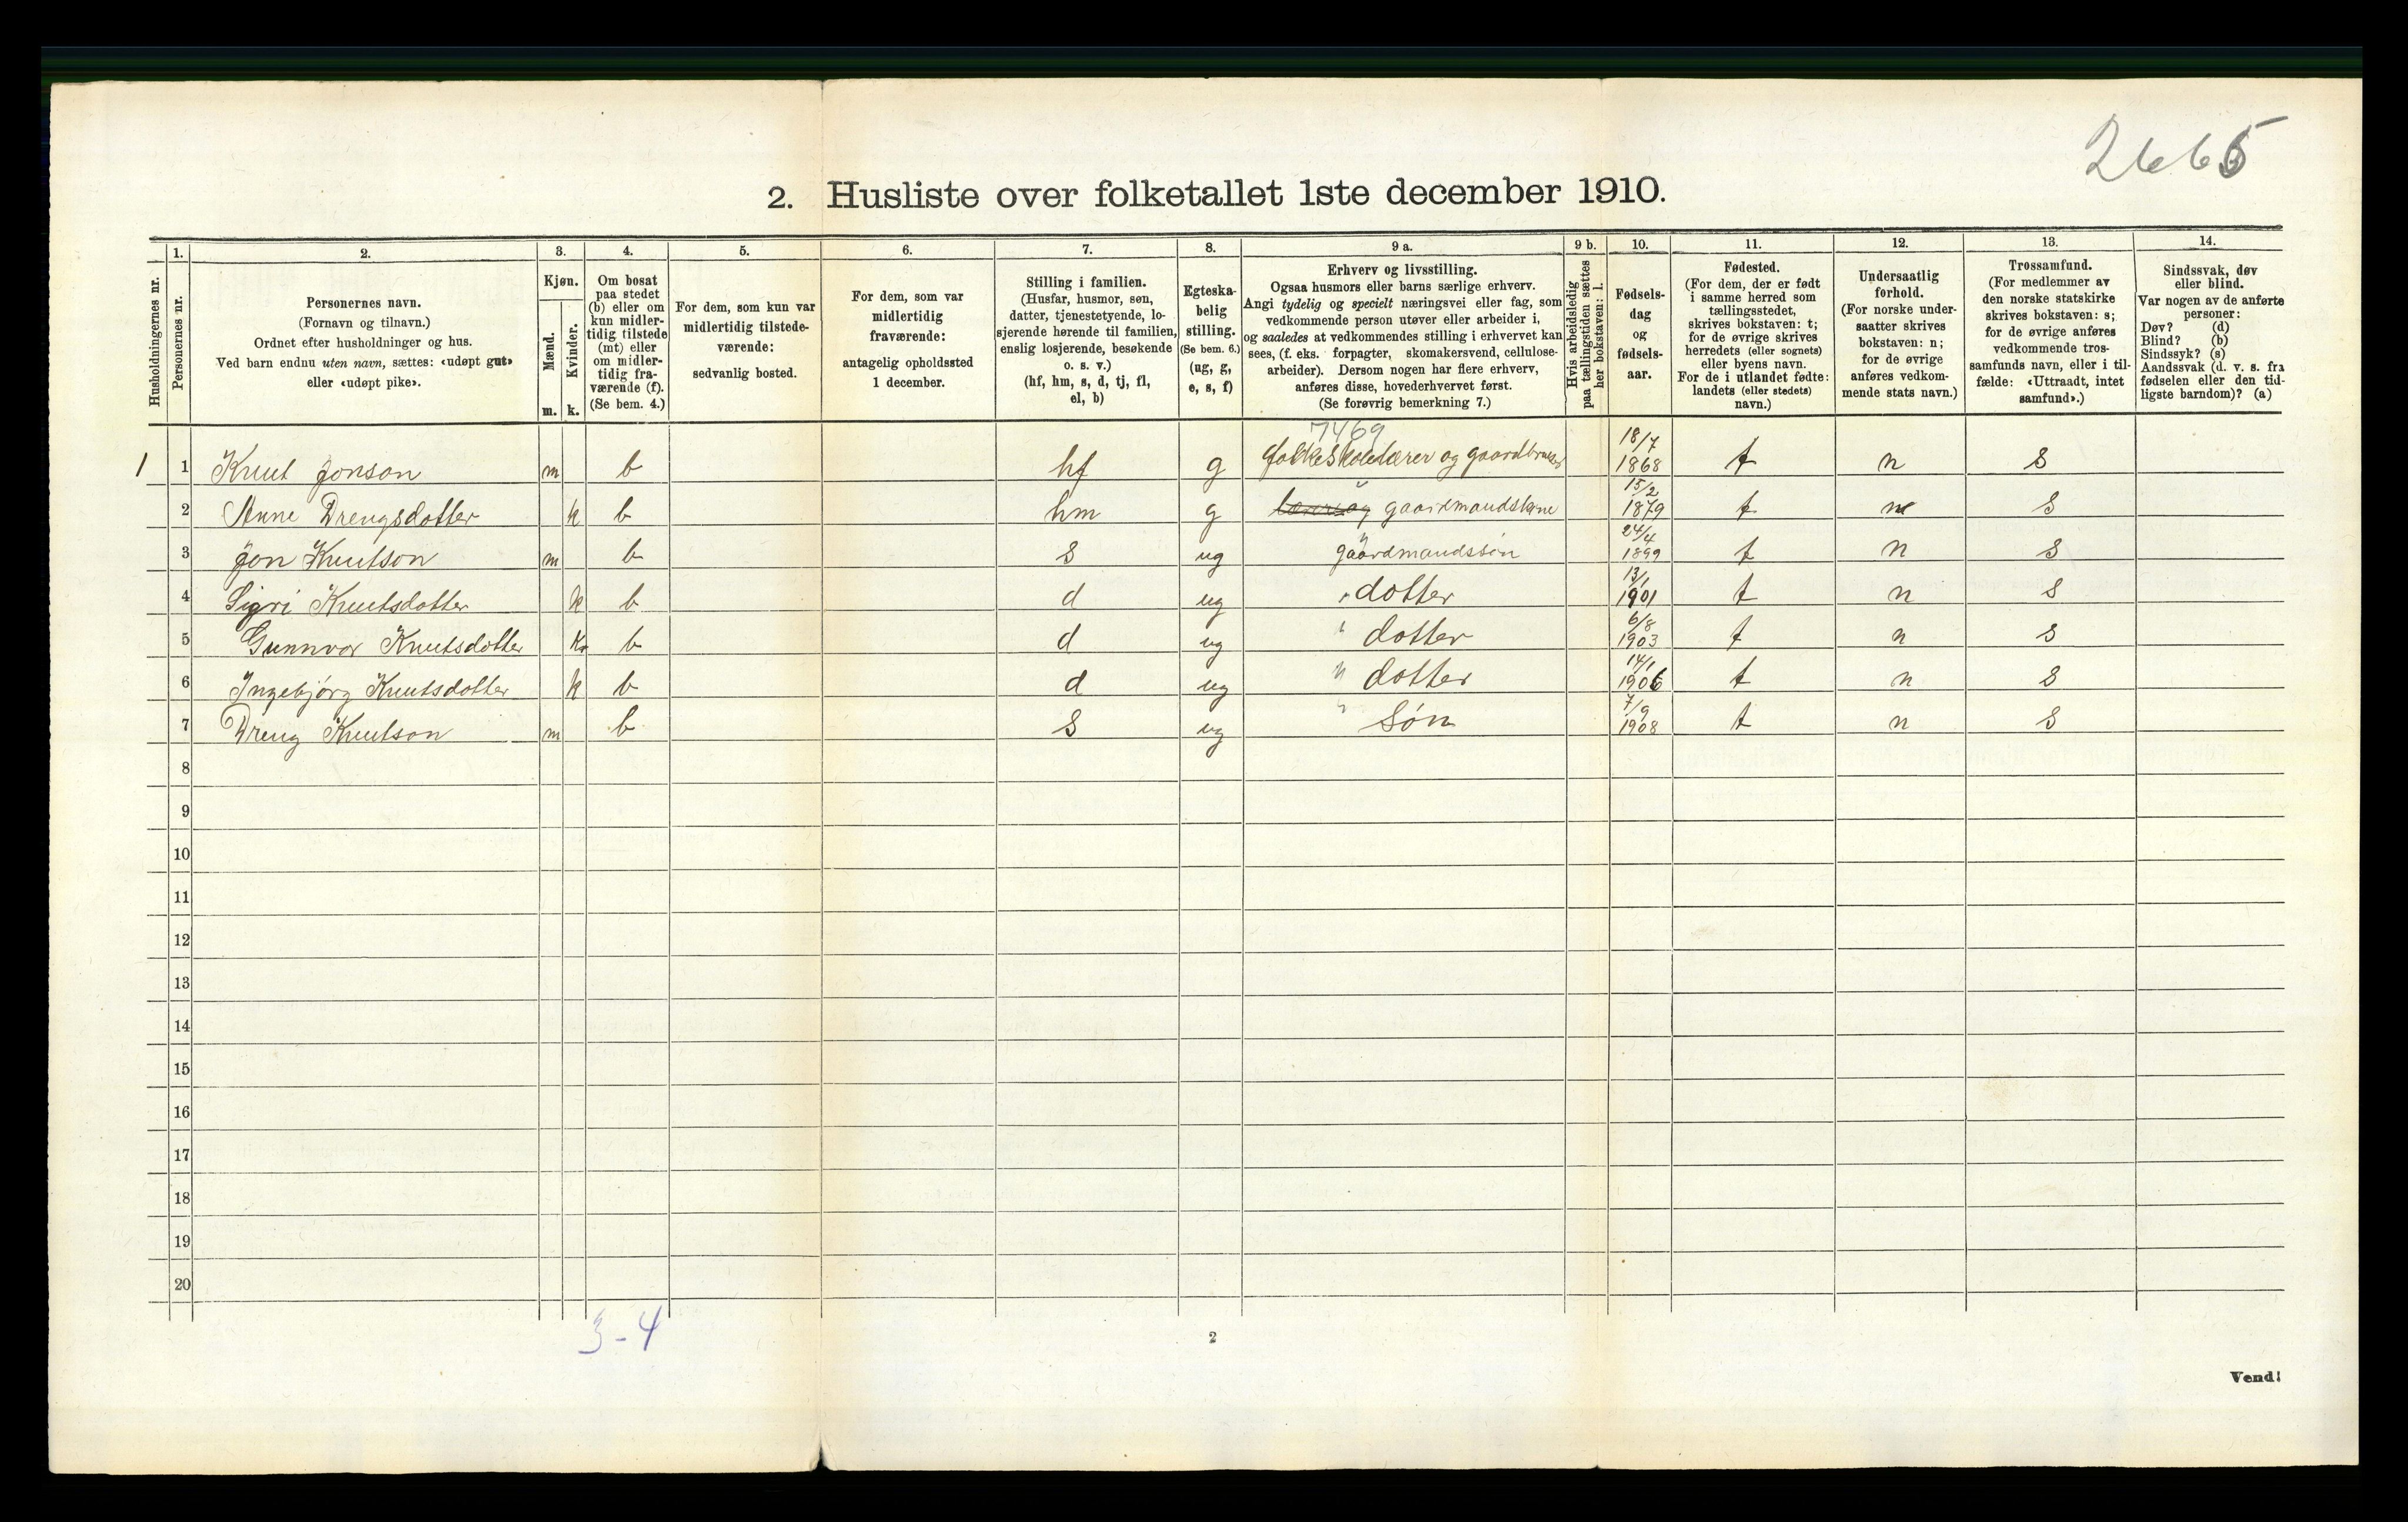 2665
2. Husliste over folketallet 1ste december 1910.
Husholdningernes nr.
1.
Personernes nr.
2.
Personernes navn.
(Fornavn og tilnavn.)
Ordnet efter husholdninger og hus.
Ved barn endnu uten navn, sættes: «udøpt gut»
eller «udøpt pike».
3.
Kjøn.
Mænd.
m.
Kvinder.
k.
4.
Om bosat
paa stedet
(b) eller om
kun midler-
tidig tilstede
(mt) eller
om midler-
tidig fra-
værende (f).
(Se bem. 4.)
5.
For dem, som kun var
midlertidig tilstede-
værende:
sedvanlig bosted.
6.
For dem, som var
midlertidig
fraværende:
antagelig opholdssted
1 december.
7.
Stilling i familien.
(Husfar, husmor, søn,
datter, tjenestetyende, lo-
sjerende hørende til familien,
enslig losjerende, besøkende
o. s. v.)
(hf, hm, s, d, tj, fl,
el, b)
8.
Egteska-
belig
stilling.
(Se bem. 6.)
(ug, g,
e, s, f)
9 a.
Erhverv og livsstilling.
Ogsaa husmors eller barns særlige erhverv.
Angi tydelig og specielt næringsvei eller fag, som
vedkommende person utøver eller arbeider i,
og saaledes at vedkommendes stilling i erhvervet kan
sees, (f. eks. forpagter, skomakersvend, cellulose-
arbeider). Dersom nogen har flere erhverv,
anføres disse, hovederhvervet først.
(Se forøvrig bemerkning 7.)
9 b.
Hvis arbeidsledig
paa tællingstiden sættes
her bokstaven: l.
10.
Fødsels-
dag
og
fødsels-
aar.
11.
Fødested.
(For dem, der er født
i samme herred som
tællingsstedet,
skrives bokstaven: t;
for de øvrige skrives
herredets (eller sognets)
eller byens navn.
For de i utlandet fødte:
landets (eller stedets)
navn.)
12.
Undersaatlig
forhold.
(For norske under-
saatter skrives
bokstaven: n;
for de øvrige
anføres vedkom-
mende stats navn.)
13.
Trossamfund.
(For medlemmer av
den norske statskirke
skrives bokstaven: s;
for de øvrige anføres
vedkommende tros-
samfunds navn, eller i til-
fælde: «Uttraadt, intet
samfund».)
14.
Sindssvak, døv
eller blind.
Var nogen av de anførte
personer:
Døv? (d)
Blind? (b)
Sindssyk? (s)
Aandssvak (d. v. s. fra
fødselen eller den tid-
ligste barndom)? (a)
7469
1 1 Knut Jonson m b hf g folkeskolelærer og gaardbruker 18/7 1868 t n s
2 Anne Drengsdotter k b hm g gaardmandskone 15/2 1879 t n s
3 Jon Knutson m b s ug gaardmandssøn 24/4 1899 t n s
4 Sigri Knutsdotter k b d ug " dotter 13/1 1901 t n s
5 Gunnvor Knutsdotter k b d ug " dotter 6/8 1903 t n s
6 Ingebjørg Knutsdotter k b d ug " dotter 14/1 1906 t n s
7 Dreng Knutson m b s ug " søn 7/9 1908 t n s
8
9
10
11
12
13
14
15
16
17
18
19
20
3-4
2
Vend!